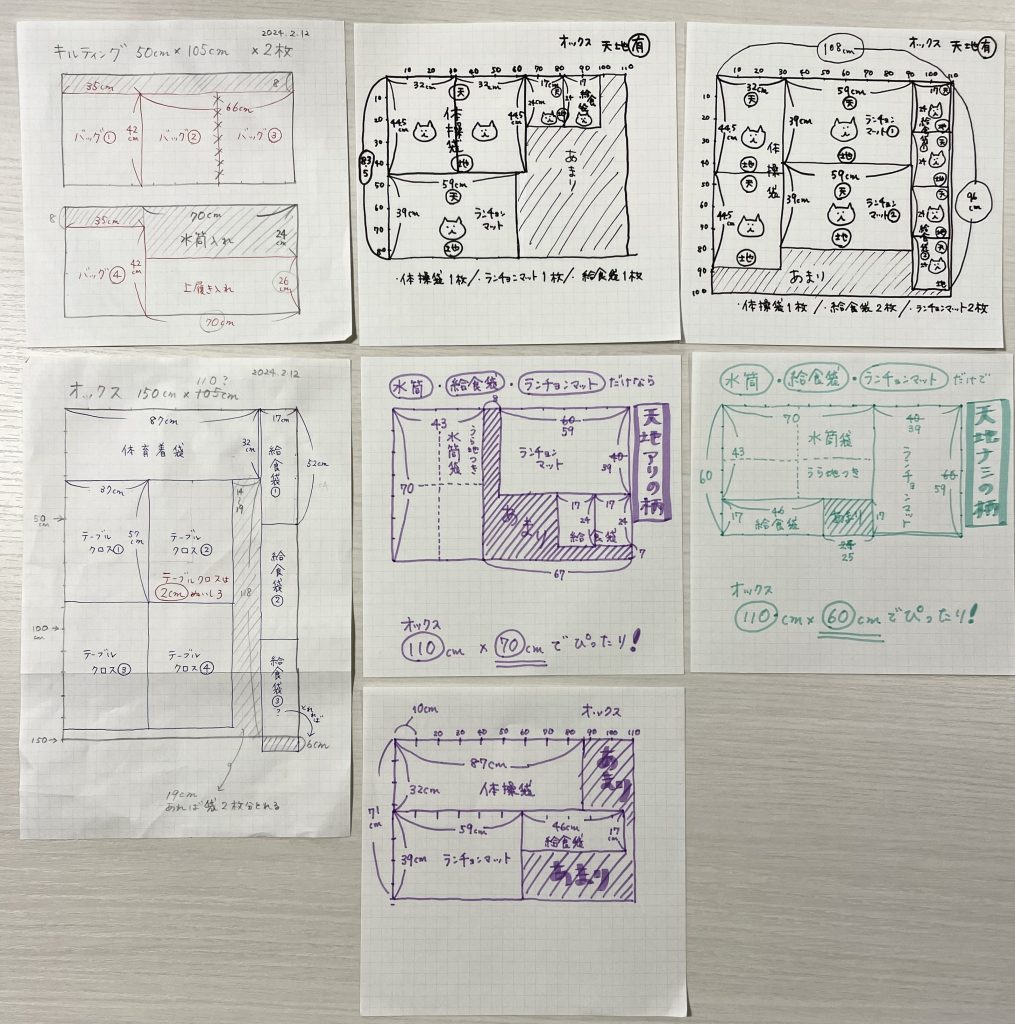 2024.2.12
キルティング 50cm×105cm ×2枚
35cm
8
66cm
バッグ①
42cm
バッグ②
バッグ③
8
35cm
70cm
水筒入れ
24cm
バッグ④
42cm
上履き入れ
26cm
70cm
オックス 天地有
10 20 30 40 50 60 70 80 90 100 110
10
20
30
40
50
60
70
80
83.5
32cm
32cm
17cm
17
天
天
44.5cm
体操袋
44.5cm
24cm
24
給食袋
地
地
地
あまり
59cm
天
39cm
ランチョンマット
地
・体操袋1枚/・ランチョンマット1枚/・給食袋1枚
オックス 天地有
108cm
10 20 30 40 50 60 70 80 90 100 110
10
20
30
40
50
60
70
80
90
100
32cm
天
44.5cm
地
天
体操袋
44.5cm
地
59cm
天
39cm
ランチョンマット①
地
59cm
天
39cm
ランチョンマット②
地
17
天
24
給食袋①
地
天
24
地
天
24
給食袋②
地
24
地
96cm
あまり
・体操袋1枚/・給食袋2枚/・ランチョンマット2枚
2024.2.12
110?
オックス 150cm×105cm
87cm
17cm
体育着袋
32cm
給食袋①
52cm
37cm
14~19
50cm
57cm
テーブルクロス①
テーブルクロス②
テーブルクロスは
2cmぬいしろ
給食袋②
118
100cm
テーブルクロス③
テーブルクロス④
給食袋③?
とれれば
150
6cm
19cm
あれば袋2枚分とれる
水筒・給食袋・ランチョンマットだけなら
8
43
水筒袋
うら地つき
70
60
59
ランチョンマット
40
39
天地アリの柄
あまり
17
17
24
24
給食袋
7
67
オックス
110cm×70cmでぴったり!
水筒・給食袋・ランチョンマットだけで
70
43
水筒袋
うら地つき
60
40
39
ランチョンマット
60
59
天地ナシの柄
46
17
給食袋
あまり
17
24
25
オックス
110cm×60cmでぴったり!
10cm
オックス
10 20 30 40 50 60 70 80 90 100 110
87cm
あまり
32cm
体操袋
71cm
59cm
46cm
給食袋
17cm
39cm
ランチョンマット
あまり